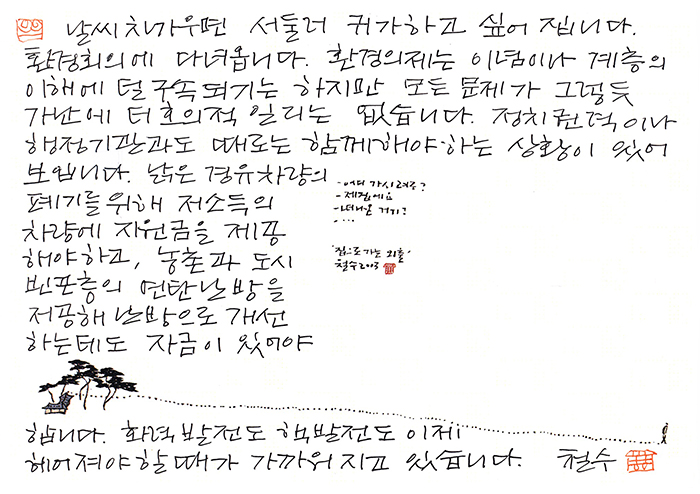 날씨 차가우면 서둘러 귀가하고 싶어 집니다.
환경회의에 다녀옵니다. 환경의제는 이념이나 계층의
이해에 덜 구속되기는 하지만 모든 문제가 그렇듯
가난에 더 호의적일리는 없습니다. 정치권력이나
행정기관과도 때로는 함께해야하는 상황이 있어
보입니다. 낡은 경유차량의
폐기를 위해 저소득의
차량에 지원금을 제공
해야하고, 농촌과 도시
빈곤층의 연탄난방을
저공해 난방으로 개선
하는데도 자금이 있어야
-어디 가시려구?
-제집에요
-너나온 거기?
- ...
'집으로 가는 외출'
철수 2013
합니다. 화력발전도 핵발전도 이제
헤어져야 할 때가 가까워 지고 있습니다. 철수